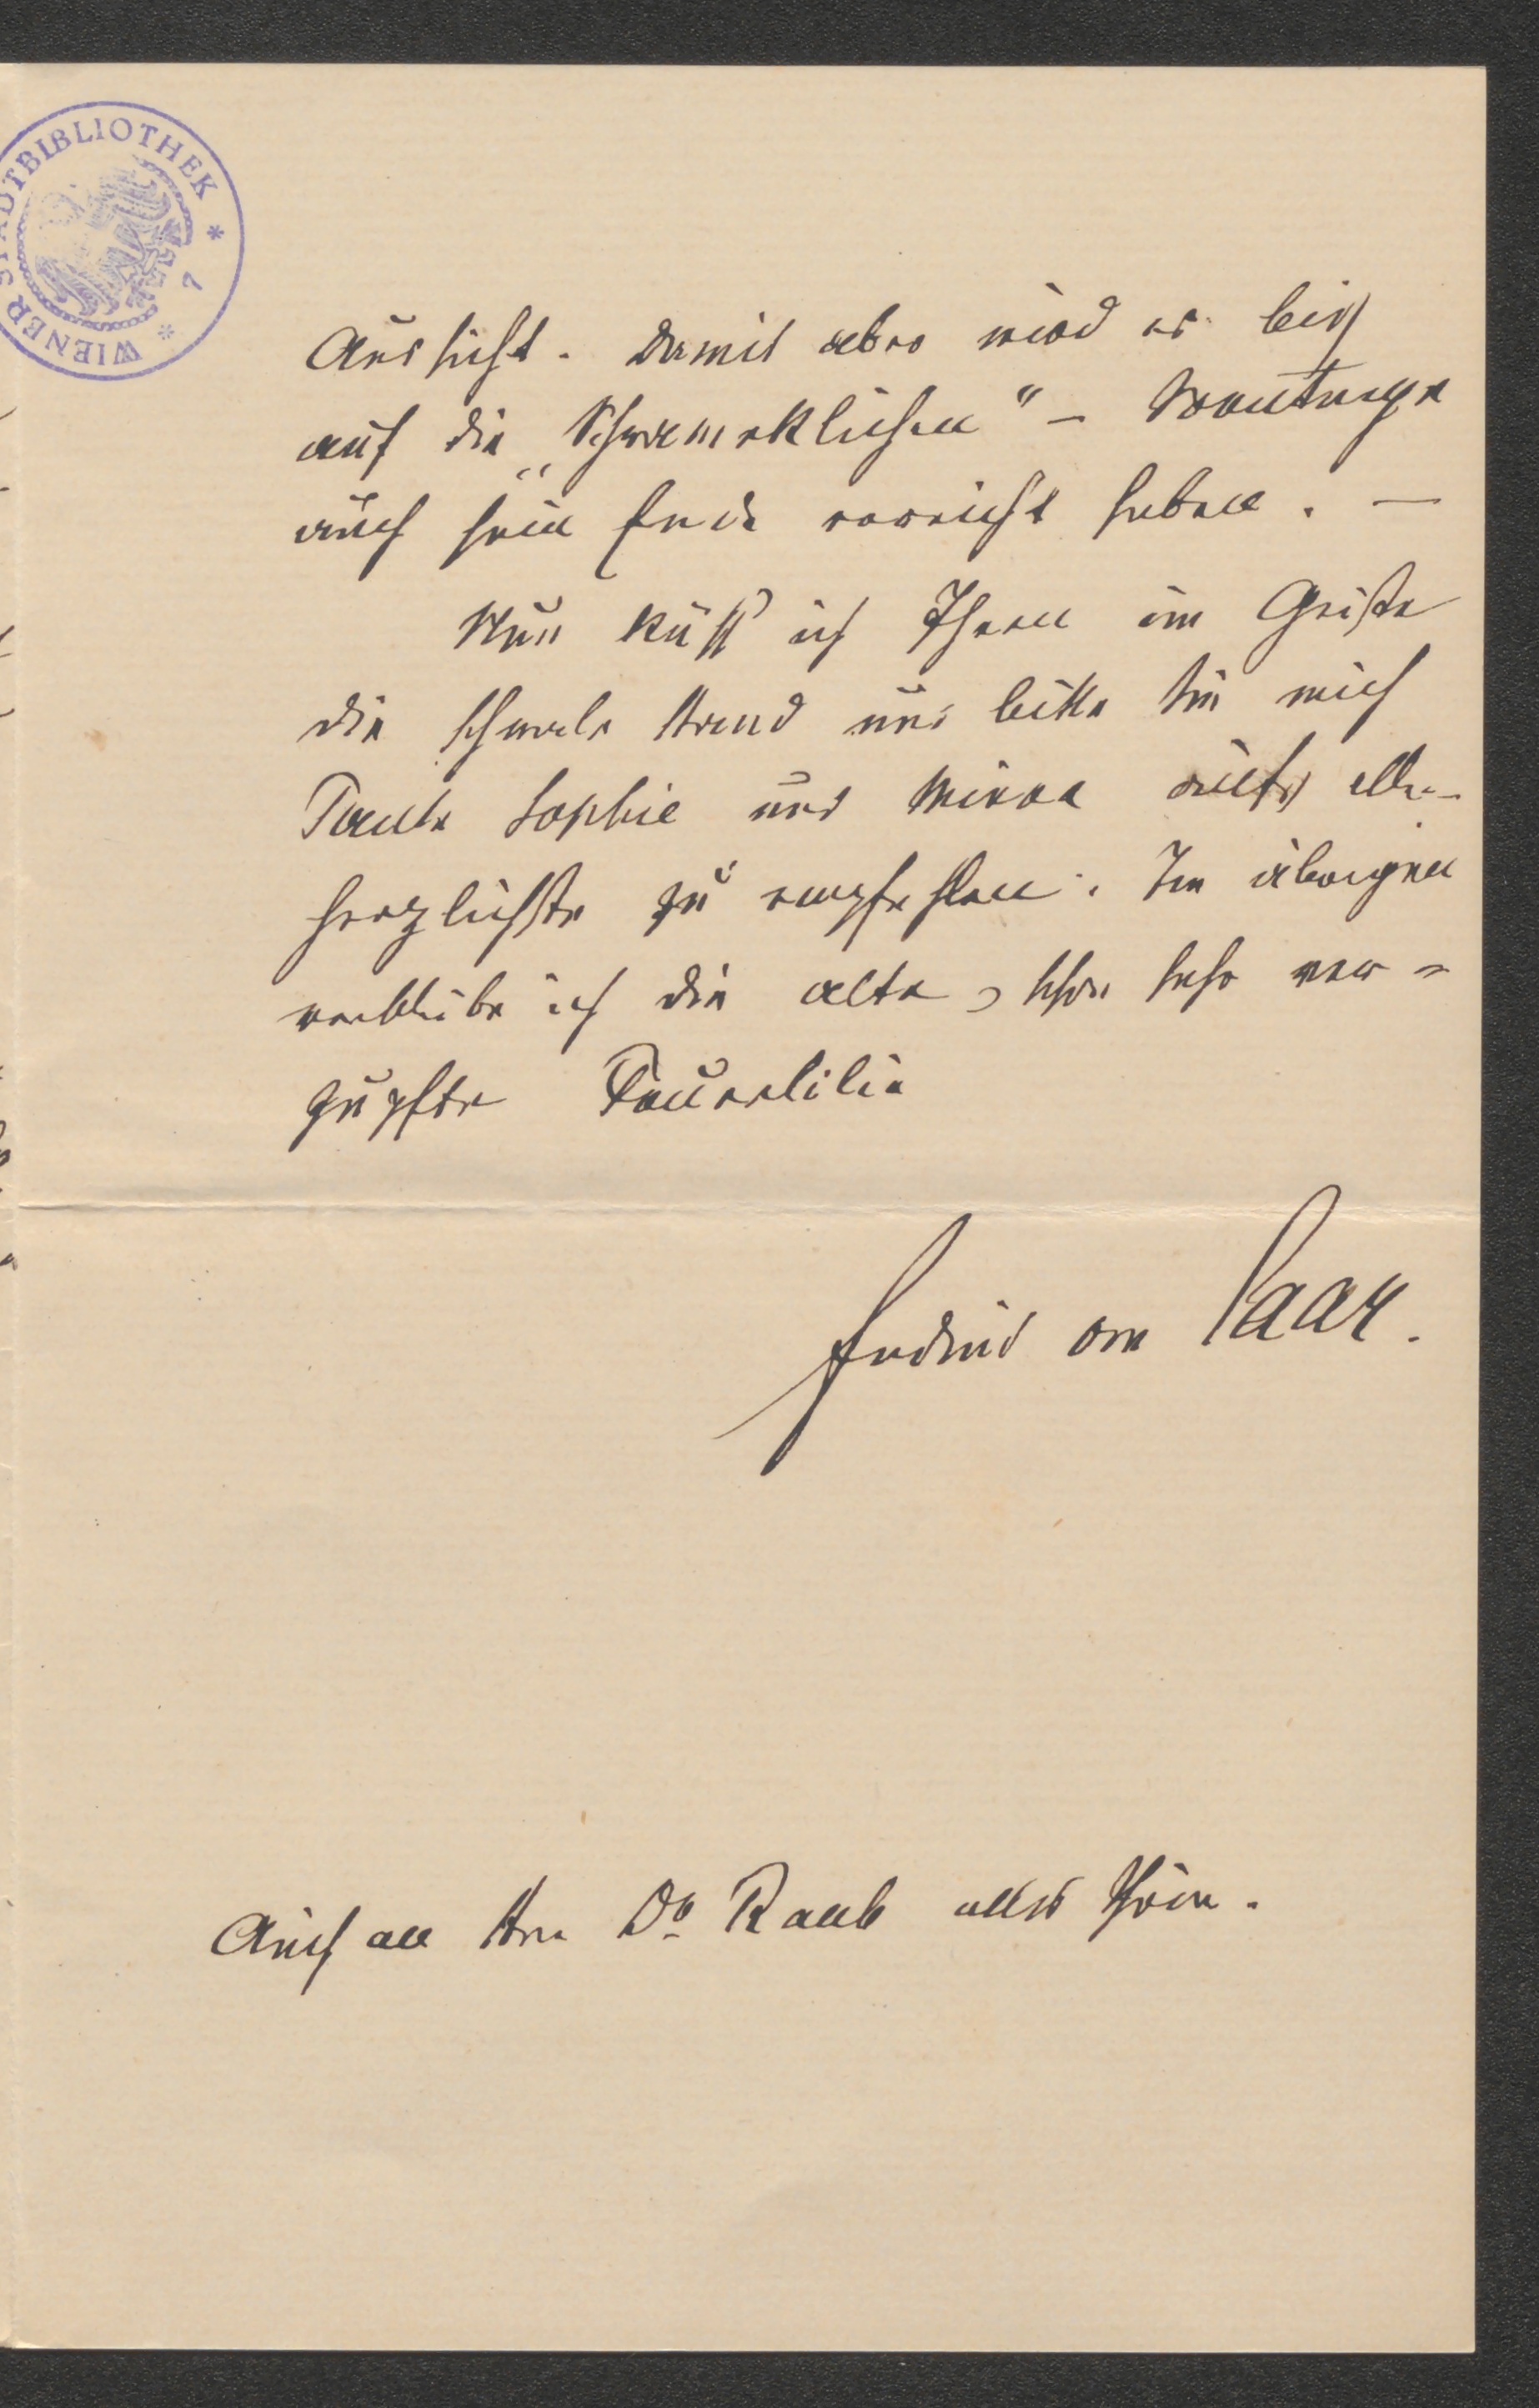 WIENER STADTBIBLIOTHEK * 7 *
Aussicht. Damit aber wird es biß
auf die „Schwamerklichen" –
auch sein Ende erreicht haben. —
Nun küß' ich Ihnen im Geiste
die schmale Hand und bitte Sie mich
Tante Sophie und Minna aufs aller-
herzlichste zu empfehlen. Im übrigen
verbleibe ich die alte, schon sehr ver-
zupfte Feuerlilie
Ferdinand von Saar.
Auch an Hrn Dr. Raab alles Schöne.